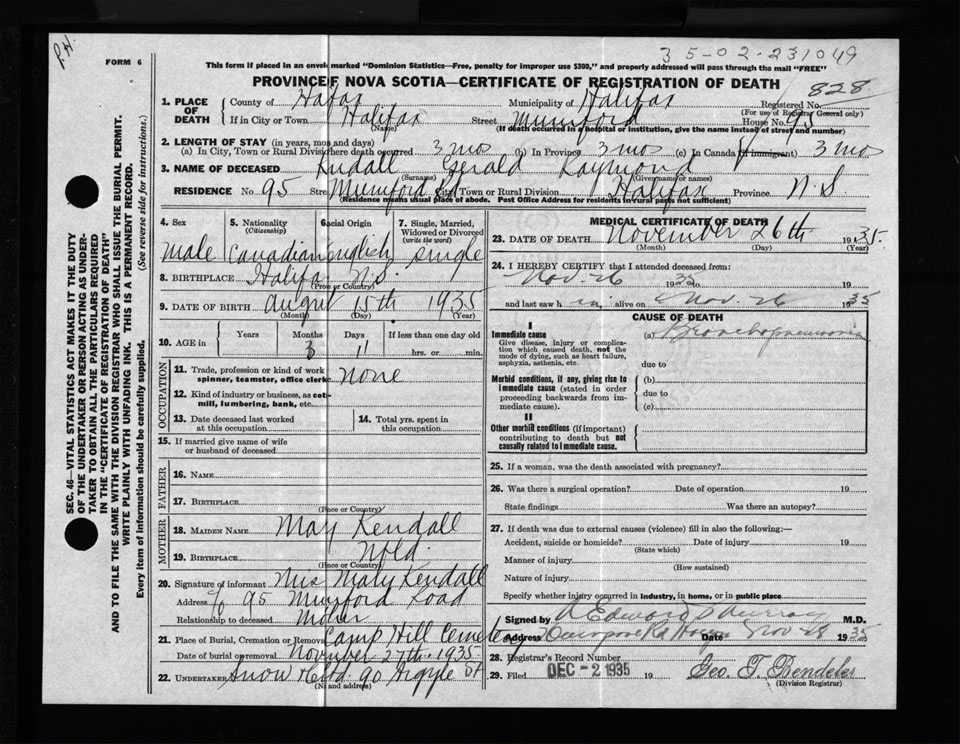 P.H.
35-02-231049
FORM 6
This form if placed in an envelope marked "Dominion Statistics—Free, penalty for improper use $300," and properly addressed will pass through the mail "FREE"
PROVINCE OF NOVA SCOTIA—CERTIFICATE OF REGISTRATION OF DEATH
828
1. PLACE OF DEATH County of Hafax Municipality of Halifax Registered No.
(For use of Registrar General only)
If in City or Town Halifax Street Mumford House No. 95
(Name) (If death occurred in a hospital or institution, give the name instead of street and number)
2. LENGTH OF STAY (in years, mos and days)
(a) In City, Town or Rural Division where death occurred 3 mos (b) In Province 3 mos (c) In Canada (if immigrant) 3 mos
3. NAME OF DECEASED Kendall Gerald Raymond
(Surname) (Given name or names)
RESIDENCE No. 95 Street Mumford Rd City Town or Rural Division Halifax Province N.S
(Residence means usual place of abode. Post Office Address for residents in rural parts not sufficient)
4. Sex 5. Nationality (Citizenship) 6. Racial Origin 7. Single, Married, Widowed or Divorced (write the word)
male Canadian English single
8. BIRTHPLACE Halifax N.S.
(Province or Country)
9. DATE OF BIRTH August 15th 1935
(Month) (Day) (Year)
10. AGE in Years Months Days If less than one day old
3 11 hrs. or min.
OCCUPATION
11. Trade, profession or kind of work as spinner, teamster, office clerk none
12. Kind of industry or business, as cotton mill, lumbering, bank, etc.
13. Date deceased last worked at this occupation 14. Total yrs. spent in this occupation
15. If married give name of wife or husband of deceased
FATHER
16. NAME
17. BIRTHPLACE
(Province or Country)
MOTHER
18. MAIDEN NAME May Kendall
19. BIRTHPLACE Nfld.
(Province or Country)
20. Signature of informant Mrs Mary Kendall
Address c/o 95 Mumford Road
Relationship to deceased Mother
21. Place of Burial, Cremation or Removal Camp Hill Cemetery
Date of burial or removal November 27th 1935
22. UNDERTAKER Snow & Co Ltd 90 Argyle St
(Name and address)
MEDICAL CERTIFICATE OF DEATH
23. DATE OF DEATH November 26th 1935.
(Month) (Day) (Year)
24. I HEREBY CERTIFY that I attended deceased from:
Nov. 26 1935 to 19
and last saw h im alive on Nov. 26 1935
CAUSE OF DEATH
I
Immediate cause (a) Bronchopneumonia
Give disease, injury or complication which caused death, not the mode of dying, such as heart failure, asphyxia, asthenia, etc.
due to
Morbid conditions, if any, giving rise to immediate cause (stated in order proceeding backwards from immediate cause).
(b)
due to
(c)
II
Other morbid conditions (if important) contributing to death but not causally related to immediate cause.
25. If a woman, was the death associated with pregnancy?
26. Was there a surgical operation? Date of operation 19
State findings Was there an autopsy?
27. If death was due to external causes (violence) fill in also the following:—
Accident, suicide or homicide? Date of injury 19
(State which)
Manner of injury
(How sustained)
Nature of injury
Specify whether injury occurred in industry, in home, or in public place
Signed by Edward Murray M.D.
Address Date Nov-28 1935
28. Registrar's Record Number
29. Filed DEC - 2 1935 19 Geo. T. Bendeler
(Division Registrar)
SEC. 46—VITAL STATISTICS ACT MAKES IT THE DUTY
OF THE UNDERTAKER OR PERSON ACTING AS UNDER-
TAKER TO OBTAIN ALL THE PARTICULARS REQUIRED
IN THE "CERTIFICATE OF REGISTRATION OF DEATH"
AND TO FILE THE SAME WITH THE DIVISION REGISTRAR WHO SHALL ISSUE THE BURIAL PERMIT.
WRITE PLAINLY WITH UNFADING INK. THIS IS A PERMANENT RECORD.
Every item of information should be carefully supplied. (See reverse side for instructions.)